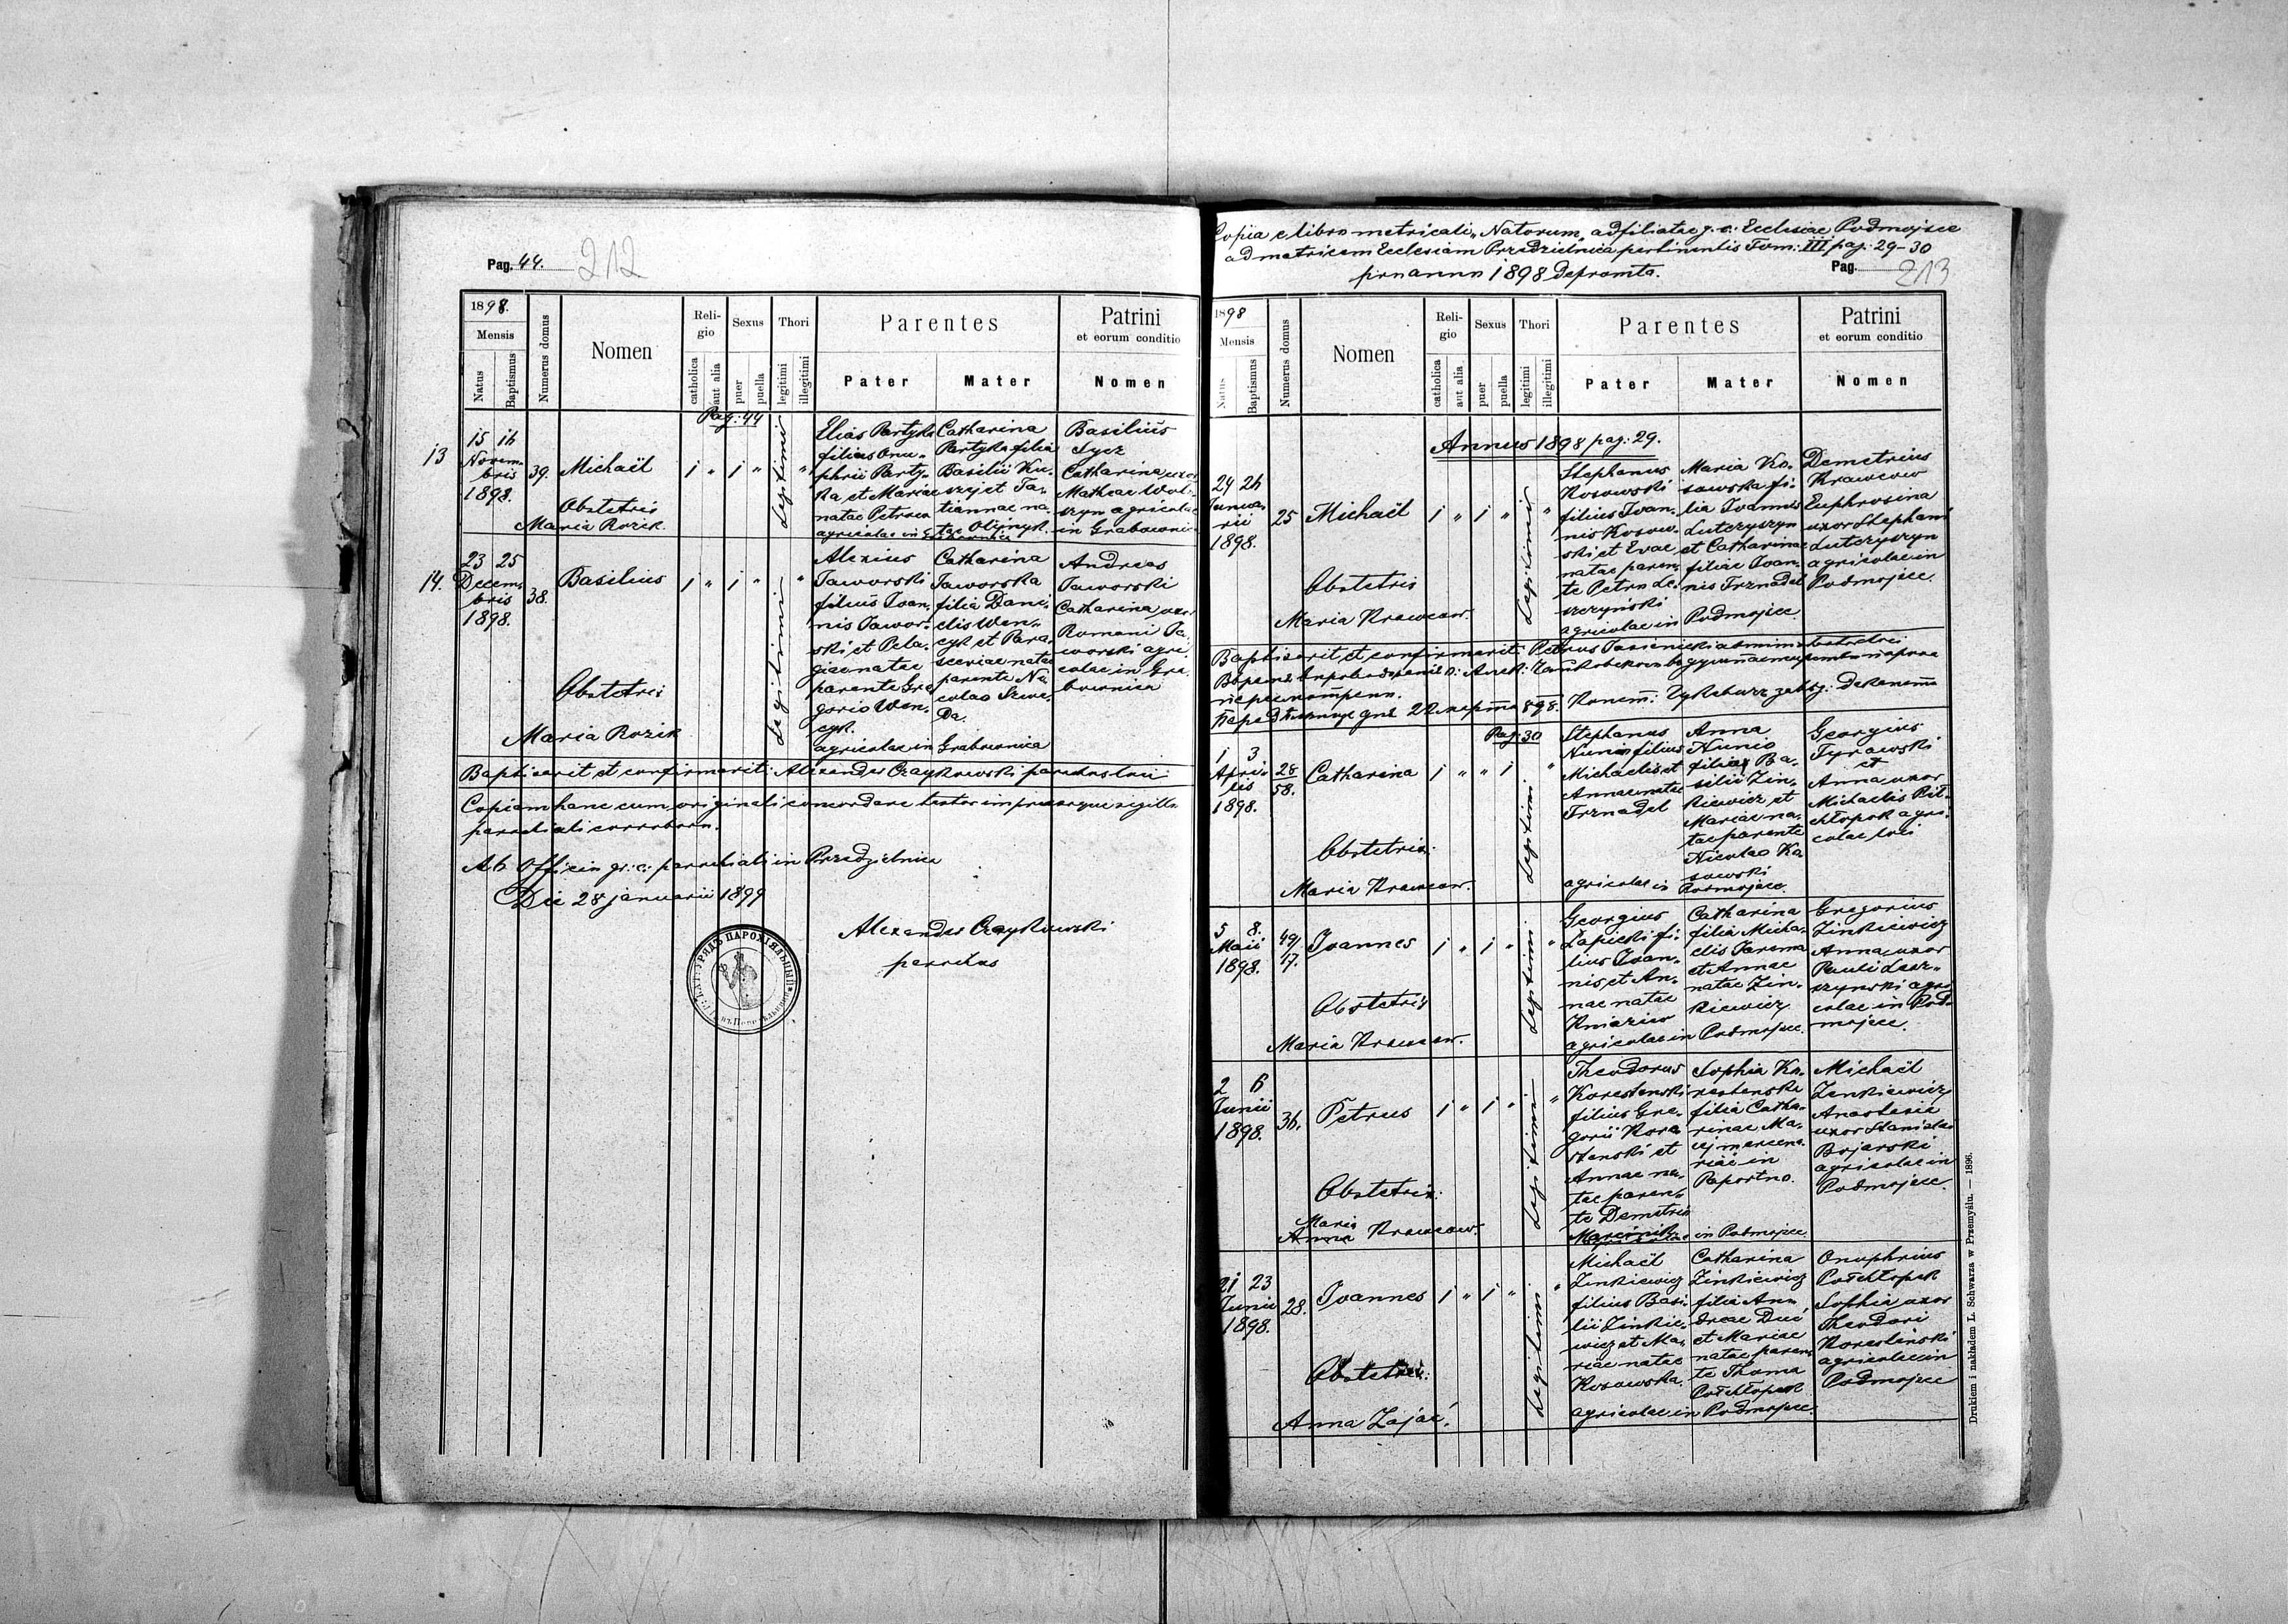 Pag. 44. 212
1898.
Mensis
Natus
Baptismus
Numerus domus
Nomen
Religio
catholica
aut alia
Sexus
puer
puella
Thori
legitimi
illegitimi
Parentes
Pater
Mater
Patrini
et eorum conditio
Nomen
Pag: 44
13
15 16
Novem-
bris
1898.
39.
Michaël
Obstetrix
Maria Rozik.
1 " 1 "
Legitimi
"
Elias Partyka
filius Onu-
phrii Party-
ka et Mariae
natae Petrow
agricolae in Grabownica
Catharina
Partyka filia
Basilii Ku-
szej et Ta-
tiannae na-
tae Olijnyk.
Basilius
Sycz
Catharina uxor
Mathiae Wol-
szyn agricolae
in Grabownica
14.
23 25
Decem-
bris
1898.
38.
Basilius
Obstetrix
Maria Rozik
1 " 1 "
Legitimi
"
Alexius
Jaworski
filius Ioan-
nis Jawor-
ski et Pela-
giae natae
parente Gre-
gorio Wen-
cyk.
agricolae in Grabownica
Catharina
Jaworska
filia Dani-
elis Wen-
cyk et Para-
sceviae natae
parente Ni-
colao Szwe-
da.
Andreas
Jaworski
Catharina uxor
Romani Ja-
worski agri-
colae in Gra-
bownica
Baptisavit et confirmavit: Alexander Czaykowski parochus loci
Copiam hanc cum originali concordare testor impressoque sigillo
parochiali corroboro.
Ab Officio gr: c: parochiali in Przedzielnica
Die 28 januarii 1899
Alexander Czaykowski
parochus
Copia e libro metricali "Natorum" adfiliatae g. c. Ecclesiae Podmojsce
ad matricem Ecclesiam Przedzielnica pertinentis Tom: III pag: 29-30
pro anno 1898 depromta.
Pag. 213
1898
Mensis
Natus
Baptismus
Numerus domus
Nomen
Religio
catholica
aut alia
Sexus
puer
puella
Thori
legitimi
illegitimi
Parentes
Pater
Mater
Patrini
et eorum conditio
Nomen
Annus 1898 pag: 29.
24 26
Januarii
1898.
25
Michaël
Obstetrix
Maria Krawcow.
1 " 1 "
Legitimi
"
Stephanus
Kosowski
filius Ioan-
nis Kosow-
ski et Evae
natae paren-
te Petro Le-
szczyński
agricolae in Podmojsce
Maria Ko-
sowska fi-
lia Ioannis
Luterzyszyn
et Catharinae
filiae Ioan-
nis Trznadel
Demetrius
Krawcow
Euphrosina
uxor Stephani
Luterzyszyn
agricolae in
Podmojsce.
Baptisavit et confirmavit: Petrus
Pag: 30
1 3
Aprilis
1898.
28
58.
Catharina
Obstetrix:
Maria Krawcow.
1 " " 1
Legitimi
"
Stephanus
Nunio filius
Michaelis et
Annae natae
Trznadel
agricolae in Podmojsce.
Anna
Nunio
filia Ba-
silii Zin-
kiewicz et
Mariae na-
tae parente
Nicolao Ko-
sowski
Georgius
Tyrawski
et
Anna uxor
Michaelis Pół-
chłopek agri-
colae loci
5 8.
Maii
1898.
49/
17.
Ioannes
Obstetrix
Maria Krawcow.
1 " 1 "
Legitimi
"
Georgius
Łapicki fi-
lius Ioan-
nis et An-
nae natae
Kniaziw
agricolae in Podmojsce.
Catharina
filia Micha-
elis Jarema
et Annae
natae Zin-
kiewicz
Gregorius
Zinkiewicz
Anna uxor
Pauli Lesz-
czynski agri-
colae in Pod-
mojsce.
2 6
Junii
1898.
36.
Petrus
Obstetrix:
Maria
Anna Krawcow.
1 " 1 "
Legitimi
"
Theodorus
Korostenski
filius Gre-
gorii Koro-
stenski et
Annae na-
tae paren-
te Demetrio
in Podmojsce
Sophia Ko-
rostenska
filia Catha-
rinae Ma-
cij mercena-
riae in
Paportno.
Michaël
Zenkiewicz
Anastasia
uxor Stanislai
Bojarski
agricolae in
Podmojsce.
21 23
Junii
1898.
28.
Ioannes
Obstetrix:
Anna Zając.
1 " 1 "
Legitimi
"
Michaël
Zinkiewicz
filius Basi-
lii Zinkie-
wicz et Ma-
riae natae
Kosowska.
agricolae in Podmojsce.
Catharina
Zinkiewicz
filia An-
dreae Duć
et Mariae
natae paren-
te Thoma
Połchłopek
Onuphrius
Połchłopek
Sophia uxor
Theodori
Korosteński
agricolae in
Podmojsce
Drukiem i nakładem L. Schwarza w Przemyślu. — 1896.